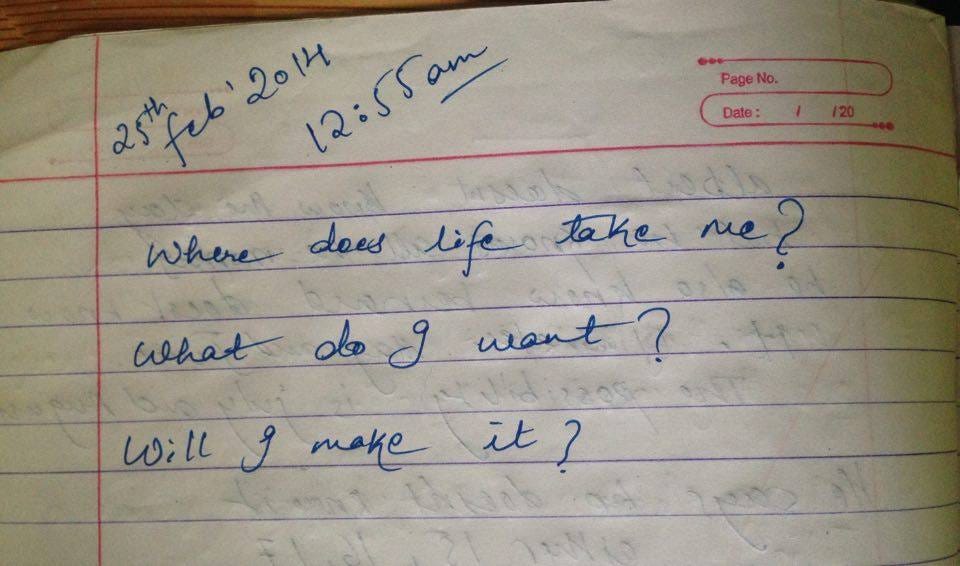 25th feb' 2014
12:55am
Page No.
Date : / /20
Where does life take me?
What do I want?
Will I make it?